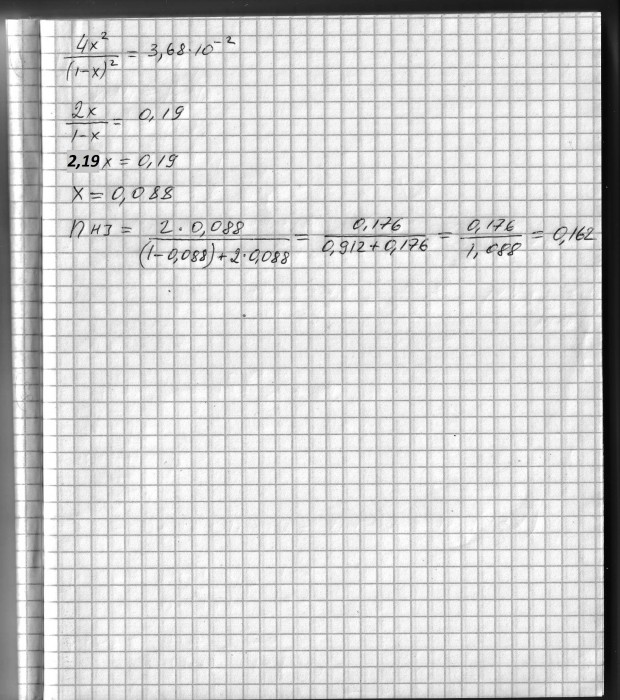 4x² / (1-x)² = 3,68·10⁻²
2x / 1-x = 0,19
2,19x = 0,19
x = 0,088
n нз = 2·0,088 / (1-0,088)+2·0,088 = 0,176 / 0,912+0,176 = 0,176 / 1,088 = 0,162